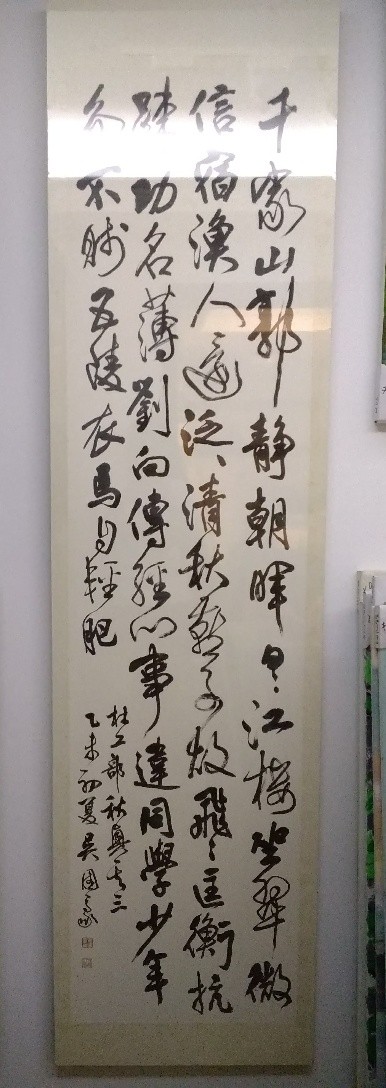 千家山郭靜朝暉日〻江樓坐翠微
信宿漁人還泛〻清秋燕子故飛〻匡衡抗
疎功名薄劉向傳經心事違同學少年
多不賤五陵衣馬自輕肥
杜工部秋興其三
乙未初夏吳國豪